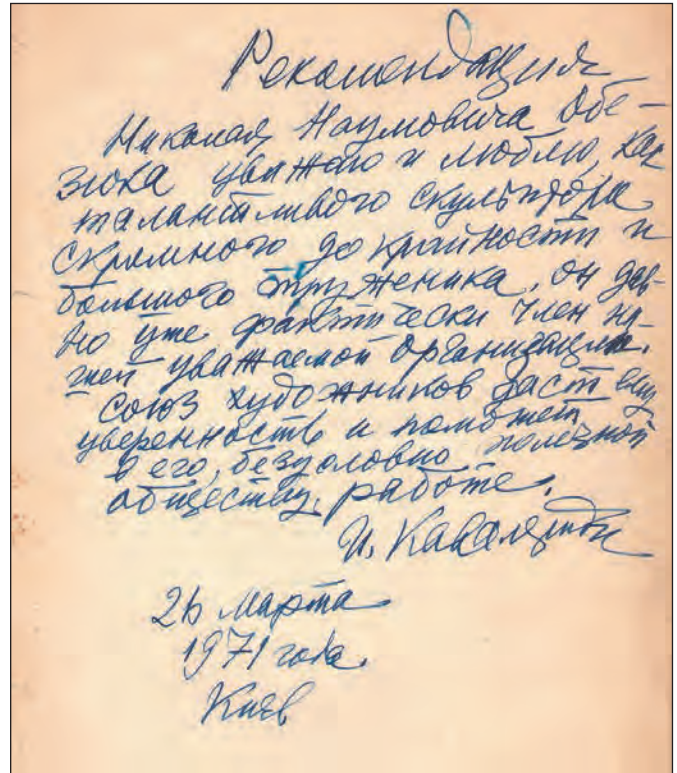 Рекомендация
Николая Наумовича Обе-
зюка уважаю и люблю, как
талантливого скульптора
скромного до крайности и
большого труженика. Он дав-
но уже фактически член на-
шей уважаемой организации.
Союз художников даст ему
уверенность и поможет
в его, безусловно полезной
обществу, работе.
И. Кавалеридзе
26 марта
1971 года.
Киев